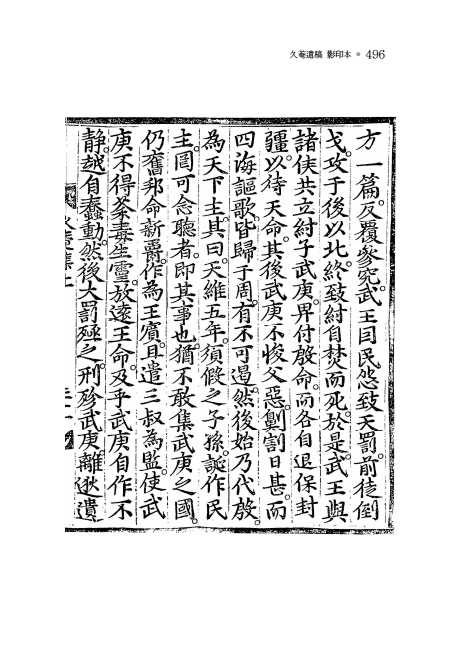 久菴遺稿 影印本 ● 496
方一篇。反覆參究。武王因民怨致天罰。前徒倒
戈。攻于後以北。終致紂自焚而死。於是。武王與
諸侯共立紂子武庚。畀付殷命。而各自退保封
疆。以待天命。其後武庚不悛父惡。劓割日甚。而
四海謳歌。皆歸于周。有不可遏。然後始乃代殷。
為天下主。其曰。天維五年。須假之子孫。誕作民
主。罔可念聽者。即其事也。猶不敢集武庚之國。
仍舊邦命新爵。作為王賓。且遣三叔為監。使武
庚不得荼毒生靈。放遠王命。及乎武庚自作不
靜。越自蠢動。然後大罰殛之。刑殄武庚。離逖遺